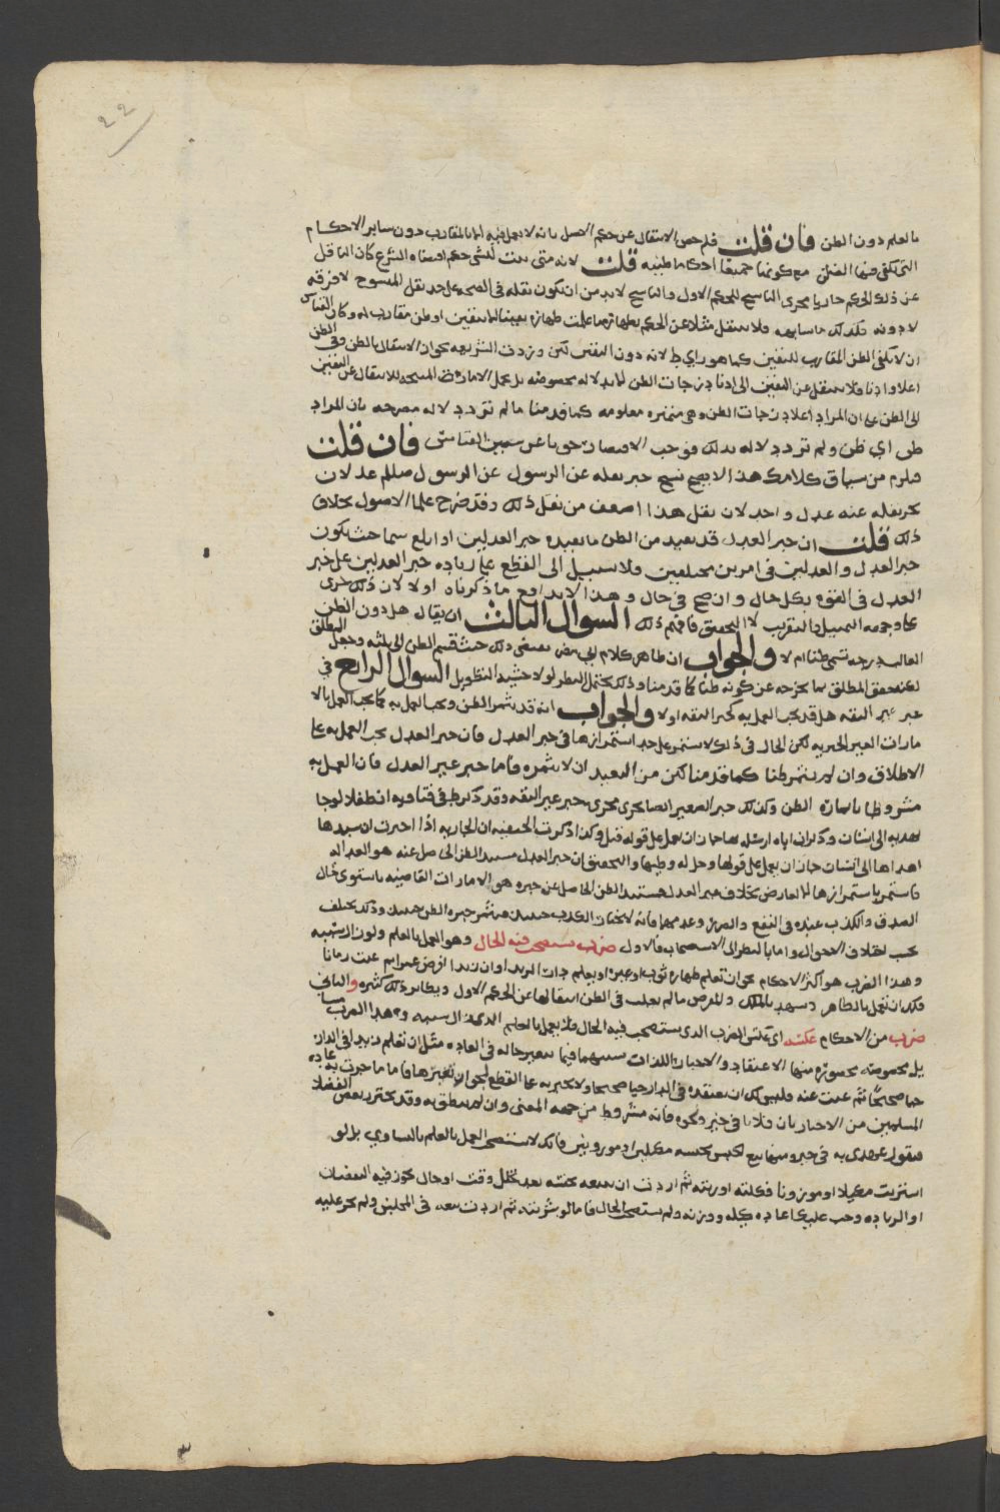 ٢٢
بالعلم دون الظن فان قلت فلم خص الانتقال عن حكم الاصل بانه لا يعمل فيه بالمقارب دون ساير الاحكام
التي يكفي فيها الظن مع كونها جميعا احكاما ظنيه قلت لانه متى ثبت لشي حكم الشرع كان الناقل
عن ذلك الحكم جاريا مجرى الناسخ للحكم الاول والناسخ لا بد من ان يكون نقله في الصحه على حد نقل المنسوخ لا فرقه
لا دونه فكذلك ما شابهه فلا ينتقل مثلا عن الحكم بطهاره ما علمت طهارته يقينا الا بيقين او ظن مقارب له وكان القياس
ان لا يكفي الظن المقارب لليقين كما هو راي ط لانه دون اليقين لكن وردت الشريعه بجواز الانتقال بالظن وفي الظن
اعلا وادنا فلا ينتقل عن اليقين الى ادنا درجات الظن بل بحمل الاماره للانتقال عن اليقين
الى الظن على ان المراد اعلا درجات الظن وهي متميزه معلومه كما قدمنا ما لم ترد دلاله مصرحه بان المراد
ظن اي ظن ولم ترد دلاله بذلك فوجب الاقتصار فان قلت
فيلزم من سياق كلامك هذا الا يصح نسخ خبر نقله عن الرسول عن الرسول صللم عدلان
بخبر نقله عنه عدل واحد لان نقل هذا اضعف من نقل ذلك وقد صرح علما الاصول بخلاف
ذلك قلت ان خبر العدل قد يفيد من الظن ما يفيده خبر العدلين او ابلغ سيما حيث يكون
خبر العدل والعدلين في امرين مختلفين فلا سبيل الى القطع على زياده خبر العدلين على خبر
العدل في القوه بكل حال وان صح في حال وهذا لا يدافع ما ذكرناه اولا لان ذلك جرى
على وجهه التمثيل والتقريب لا التحقيق فافهم ذلك السوال الثالث ان يقال هل دون الظن
الغالب درجه تسمى ظنا ام لا والجواب ان ظاهر كلام يقتضي ذلك حيث قسم الظن الى ثلثه وجعل المطلق
لكنه حقق المطلق بما يخرجه عن كونه ظنا كما قدمنا وذلك يحتمل النظر لولا خشيه التطويل السوال الرابع في
خبر غير الثقه هل قد يجب العمل به كخبر الثقه او لا والجواب انه قد يثمر الظن ويجب العمل به كما يجب العمل بالا
مارات الغير الخبريه لكن الحال في ذلك لا يستمر على حد استمرارها في خبر العدل فان خبر العدل يجب العمل به على
الاطلاق وان لم يثمر ظنا كما قدمنا لكن من البعيد ان لا يثمره فاما خبر غير العدل فان العمل به
مشروط باثماره الظن وكذلك خبر الصغير ايضا يجري مجرى خبر غير الثقه وقد ذكر ط في فتاويه ان طفلا لو جا
بهديه الى انسان وذكر ان اباه ارسله بها جاز ان يعمل على قوله قبل وكذا ذكرت الحنفيه ان الجاريه اذا اخبرت ان سيدها
اهداها الى انسان جاز ان يعمل على قولها وحل له وطيها والتحقيق ان خبر العدل مستند الظن الحاصل عنه هو العداله
فاستمر باستمرارها بخلاف خبر غير العدل فمستند الظن الحاصل عن خبره هو الامارات القاضيه باستوى حال
الصدق والكذب عنده في النفع والضرر وعدمهما فانه لا يختار الكذب حينئذ فيثمر خبره الظن حينئذ وذلك يختلف
بحسب اختلاف الاحوال واما بالنظر الى الاستصحاب فالاول ضرب يستصحب فيه الحال وهو العمل بالعلم ولو زال سببه
وهذا الضرب هو اكثر الاحكام نحو ان تعلم طهاره ثوب او غيره او تعلم ان الدار لزيد او ان زيدا اقرض عمرا ثم غبت زمانا
فلك ان تعمل بالظاهر وتشهد بالملك والقرض ما لم يغلب في الظن انتقالها عن الحكم الاول ونظاير ذلك كثيره والثاني
ضرب من الاحكام عكسه اي عكس الضرب الذي يستصحب فيه الحال فلا يعمل بالعلم الذي زال سببه وهذا الضرب
بل مخصوصه محصوره منها الاعتقاد والاخبار فيما يتغير حاله في العاده مثل ان تعلم زيدا في الدار
حيا صحيحا ثم غبت عنه فليس لك ان تعتقده في الدار حيا صحيحا ولا تخبر به على القطع لجواز تغيرها فاما ما جرت به عاده
المسلمين من الاخبار بان فلانا في خير ونحوه فانه مشروط من جهه المعنى وان لم ينطق به وقد يحترز بعض الفضلا
فيقول عهدي به في خير ومنها بيع مكيلين او موزونين فانك لا تستصحب العمل بالعلم بالتساوي بل لو
اشتريت مكيلا او موزونا فكلته او وزنته ثم اردت ان تبيعه بعد تخلل وقت او حال يجوز فيه النقصان
او الزياده وجب عليك اعاده كيله ووزنه ولم يستصحب الحال ثم اردت بيعه في المجلس ولم يجز عليه